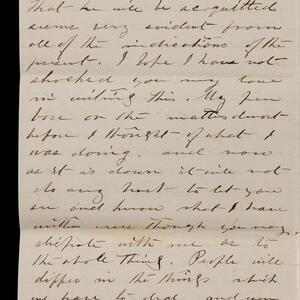 That he will be acquitted
seems very evident from
all of the indications of the
present. I hope I have not
shocked you my love
in writing this. My pen
bore on the matter
before I thought of what I
was doing. and now
as it is down it will not
do any hurt to let you
see and know what I have
written even though you may
dispute with me as to
the whole thing. People will
differ in the things which
we have to deal and